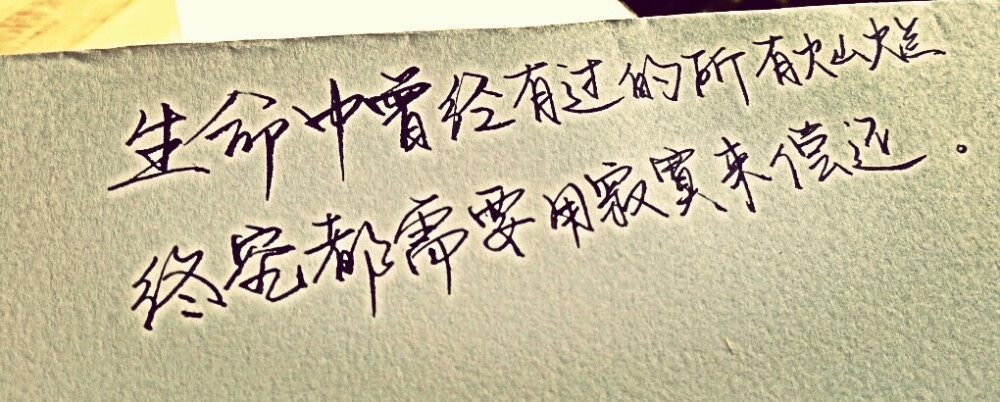 生命中曾经有过的所有灿烂
终究都需要用寂寞来偿还。